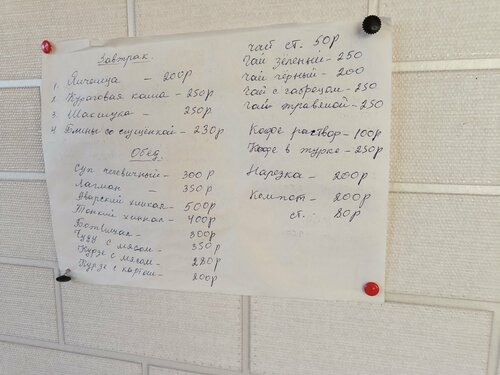 Завтрак.
1. Яичница - 200р
2 Кураговая каша - 250р
3 Шакшука - 250р
4 Блины со сгущёнкой - 230р
Обед
Суп чечевичный - 300р
Лагман - 350р
Аварский хинкал - 500р
Тонкий хинкал - 400р
Ботвичал - 300р
Чуду с мясом - 350р
Курзе с мясом - 280р
Курзе с картош - 200р
Чай ст. 50р
Чай зеленый - 250
Чай чёрный - 200
Чай с чабрецом - 250
Чай травяной - 250
Кофе раствор - 100р
Кофе в турке - 250р
Нарезка - 200р
Компот - 200р
ст. 80р